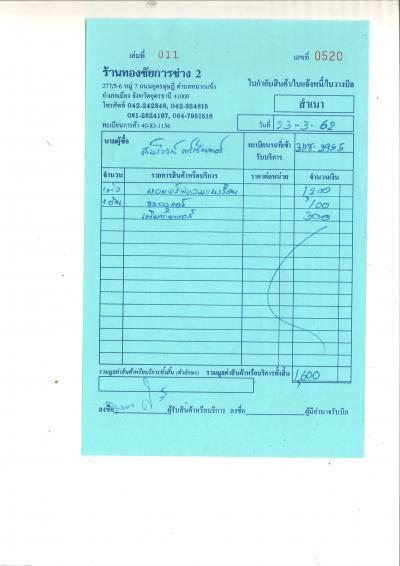 เล่มที่ 011 เลขที่ 0520
ร้านทองชัยการช่าง 2
277/5-6 หมู่ 7 ถนนอุดรดุษฎี ตำบลหมากแข้ง
อำเภอเมือง จังหวัดอุดรธานี 41000
ใบกำกับสินค้า/ใบแจ้งหนี้/ใบวางบิล
โทรศัพท์ 042-242348, 042-324815
081-2624197, 084-7951516
สำเนา
ทะเบียนการค้า 40-83-1156
วันที่ 23-3-62
นามผู้ซื้อ
ทะเบียนรถที่เข้ารับบริการ
จำนวน รายการสินค้าหรือบริการ ราคาต่อหน่วย จำนวนเงิน
1,200
100
300
รวมมูลค่าสินค้าหรือบริการทั้งสิ้น (ตัวอักษร) รวมมูลค่าสินค้าหรือบริการทั้งสิ้น 1,600
ลงชื่อ ผู้รับสินค้าหรือบริการ ลงชื่อ ผู้มีอำนาจรับบิล